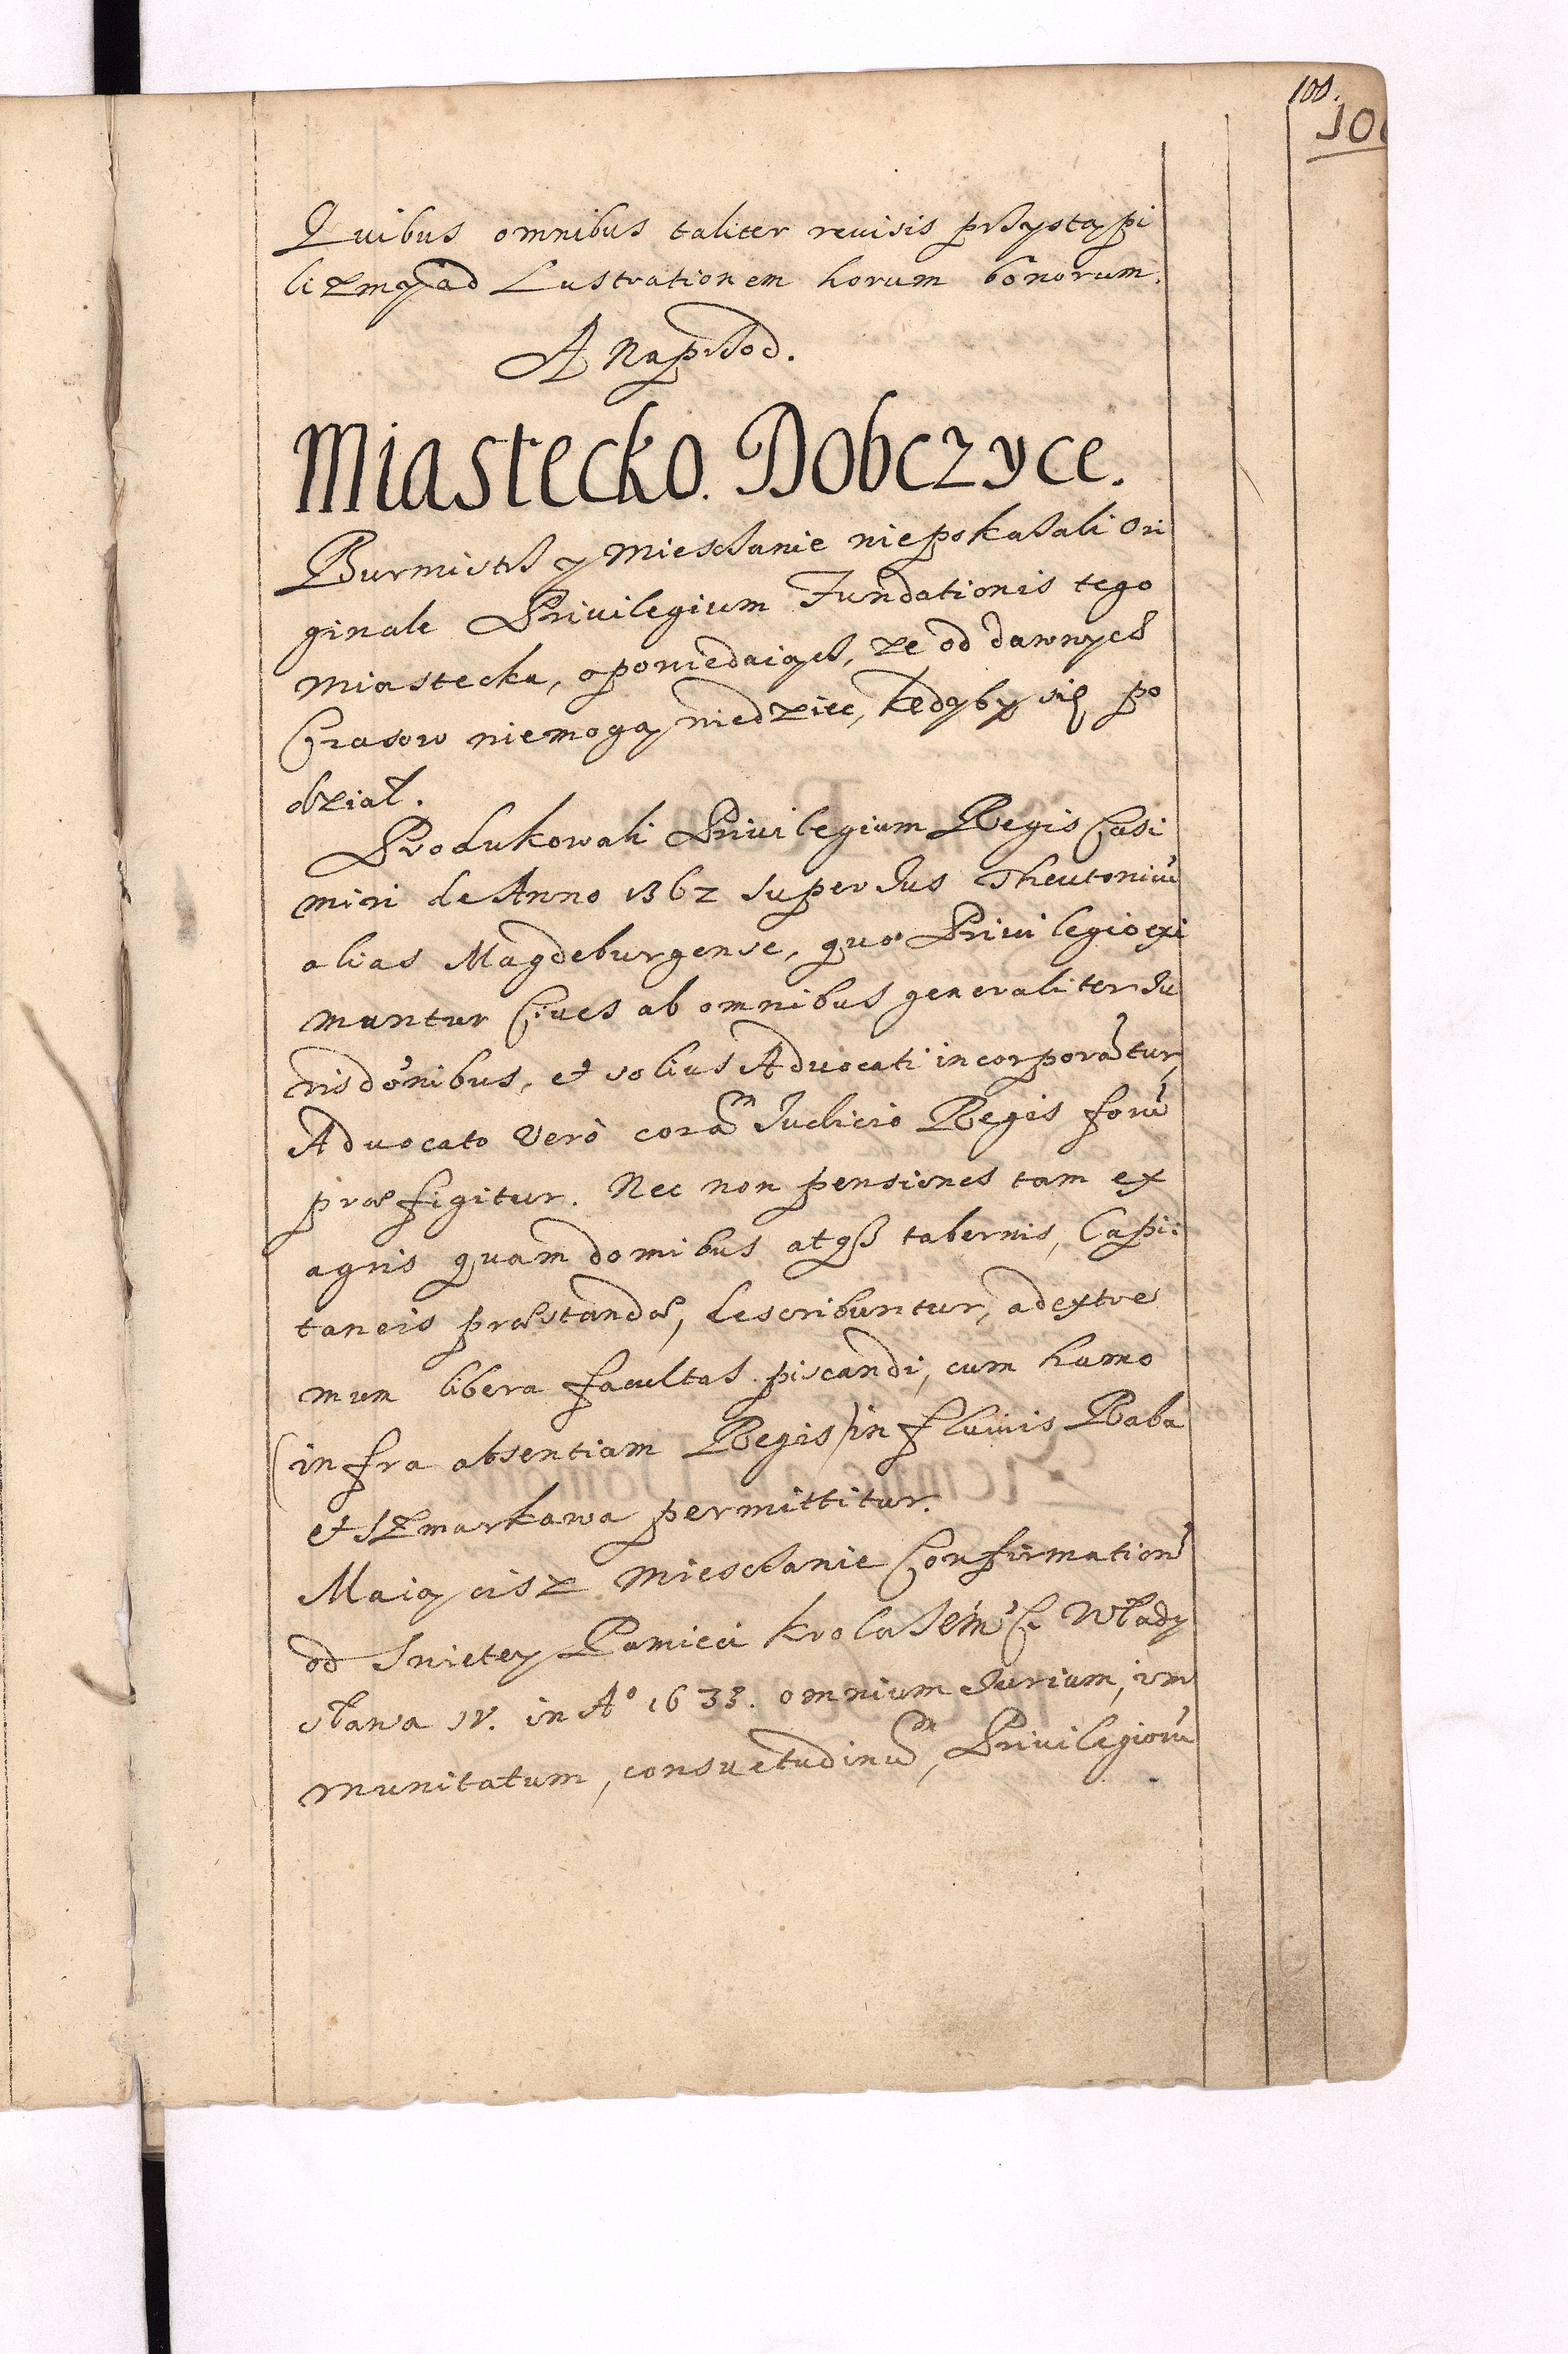 108.
10
Quibus omnibus taliter reuisis przystąpi
lizmy ad Lustrationem horum bonorum.
A Naprzod.
Miastecko. Dobczyce.
Burmistrz y Mieszczanie niepokazali Ori
ginale Priuilegium Fundationis tego
Miastecka, opowiedaiąc, ze od dawnych
Czasow niemogą wiedziec, kędyby się po
dział.
Produkowali Priuilegium Regis Casi
miri de Anno 1362 super Jus Theutoniců
alias Magdeburgense, quo Priuilegio exi
muntur Ciues ab omnibus generaliter Ju
risdonibus, et solius Aduocati incorporãtur,
Aduocato verò coram Judicio Regis forũ
præfigitur. Nec non pensiones tam ex
agris quam domibus atqз tabernis, Capi:
taneis præstandæ, describuntur, ad extre
mum libera facultas piscandi, cum hamo
(infra absentiam Regis) in fluuiis Raba
et Szmarkawa permittitur.
Maią cisz Mieszczanie Confirmation
od Swietey Pamieci Krola Jem̃ści Włady
sława IV. in Aº 1633. omnium Jurium, im
munitatum, consuetudinum, Priuilegiorũ